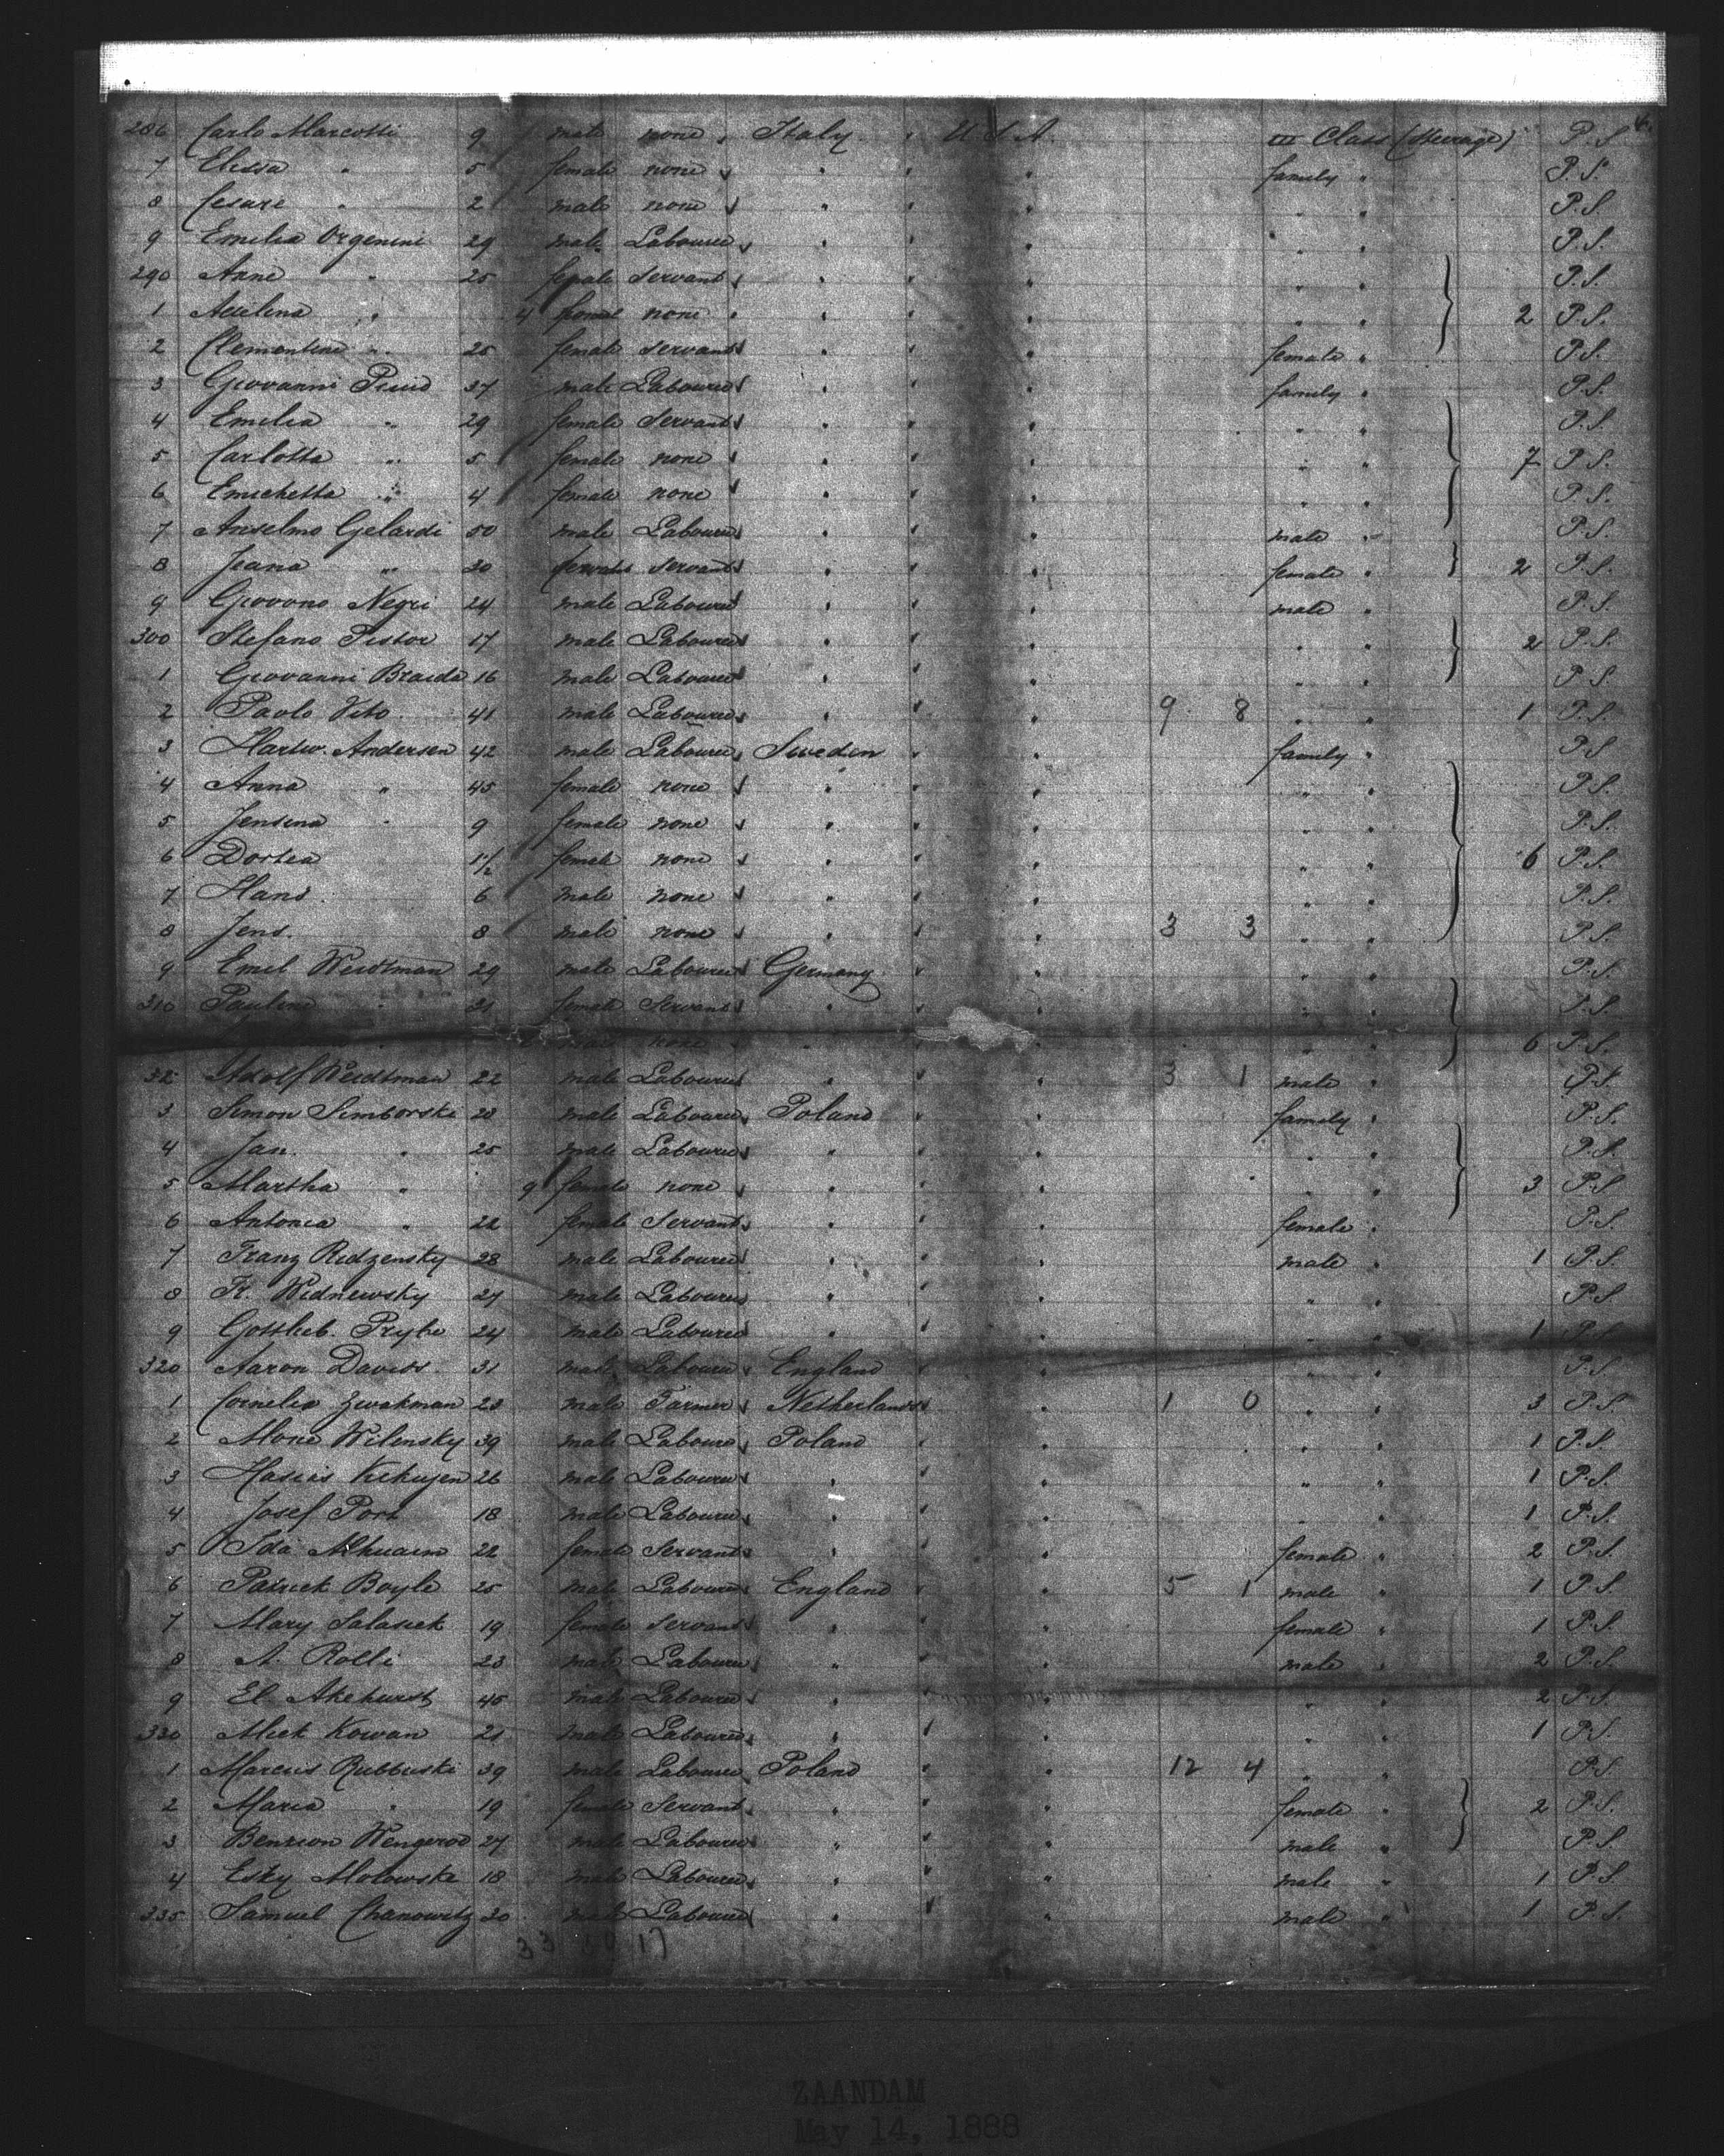 286 Carlo Marcotti 9 male none Italy U.S.A. III Class (Steerage) P.S.
7 Elissa " 5 female none " " family " P.S.
8 Cesare " 2 male none " " " " P.S.
9 Emilia Orgenini 29 male Labourer " " " " P.S.
290 Anne " 25 female Servant " " " " P.S.
1 " 4 female none " " " " 2 P.S.
2 Clementine " 25 female Servant " " female " P.S.
3 Giovanni 37 male Labourer " " family " P.S.
4 Emilia " 29 female Servant " " " " P.S.
5 Carlotta " 5 female none " " " " 7 P.S.
6 Enrichetta " 4 female none " " " " P.S.
7 Anselmo Gelardi 50 male Labourer " " male " P.S.
8 Jeana " 30 Servant " " female " 2 P.S.
9 Negri 24 male Labourer " " male " P.S.
300 Stefano Pistor 17 male Labourer " " " " 2 P.S.
1 Giovanni Braida 16 male Labourer " " " " P.S.
2 Paolo Vito 41 male Labourer " " 9 8 " " 1 P.S.
3 Hartw. Andersen 42 male Labourer Sweden " family " P.S.
4 Anna " 45 female none " " " " P.S.
5 Jensina " 9 female none " " " " P.S.
6 Dortea 1 1/2 female none " " " " 6 P.S.
7 Hans 6 male none " " " " P.S.
8 Jens. 8 male none " " 3 3 " " P.S.
9 Emil Weidtman 29 male Labourer Germany " " " P.S.
310 Pauline " 31 female Servant " " " " P.S.
none " " 6 P.S.
312 Adolf Weidtman 22 male Labourer " " 3 1 male " P.S.
3 Simon Simborski 28 male Labourer Poland " family " P.S.
4 Jan. " 25 male Labourer " " " " P.S.
5 Martha " 9 female none " " " " 3 P.S.
6 Antonia " 22 female Servant " " female " P.S.
7 Franz Redzensky 28 male Labourer " " male " 1 P.S.
8 K. Wednewsky 27 male Labourer " " " " P.S.
9 Gottlieb. 24 male Labourer " " " " 1 P.S.
320 Aaron Davids 31 male Labourer England " " " P.S.
1 Cornelis Zwakman 23 male Farmer Netherlands " 1 0 " " 3 P.S.
2 Wilensky 39 male Labourer Poland " " " 1 P.S.
3 26 male Labourer " " " " 1 P.S.
4 Josef Port 18 male Labourer " " " " 1 P.S.
5 Ida 22 female Servant " " female " 2 P.S.
6 Patrick Boyle 25 male Labourer England " 5 1 male " 1 P.S.
7 Mary Salasick 19 female Servant " " female " 1 P.S.
8 A. Rolli 23 male Labourer " " male " 2 P.S.
9 El. Akehurst 45 male Labourer " " " " 2 P.S.
330 Kowan 21 male Labourer " " " " 1 P.S.
1 Marcus Rubbuski 39 male Labourer Poland " 12 4 " " P.S.
2 Maria " 19 female Servant " " female " 2 P.S.
3 Benzion Wengerow 27 male Labourer " " male " P.S.
4 Esky Molowski 18 male Labourer " " male " 1 P.S.
335 Samuel Chanowitz 30 male Labourer " " male " 1 P.S.
33 17
ZAANDAM
May 14, 1888